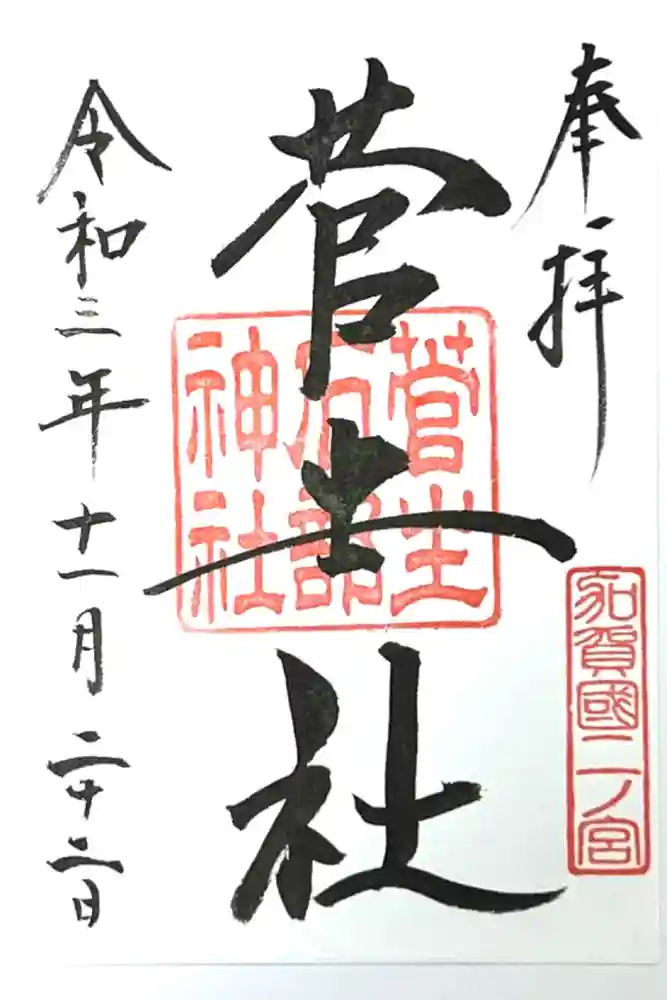 奉拝
加賀國二ノ宮
菅生社
菅生
石部
神社
令和三年十一月二十二日